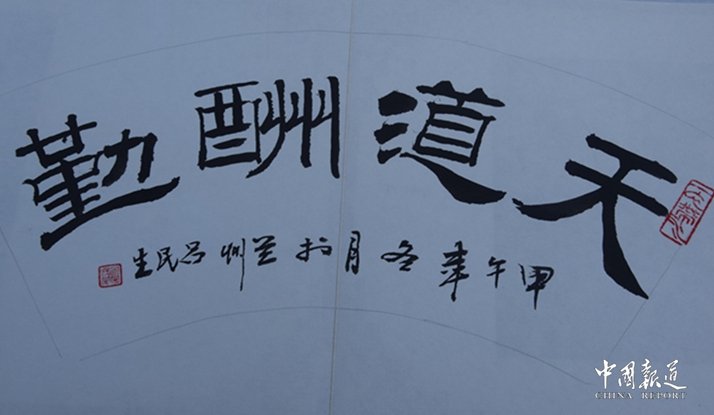 天道酬勤
甲午年冬月扵兰州吕民生
中国报道
CHINA REPORT